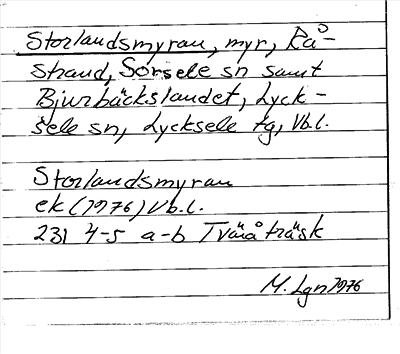 Storlandsmyran, myr, Rå-
strand, Sorsele sn samt
Bjurbäckslandet, Lyck-
sele sn, Lycksele tg, Vb.l.
Storlandsmyran
ek (1976) Vb.l.
231 4-5 a-b Tväråträsk
M. Lgn 1976